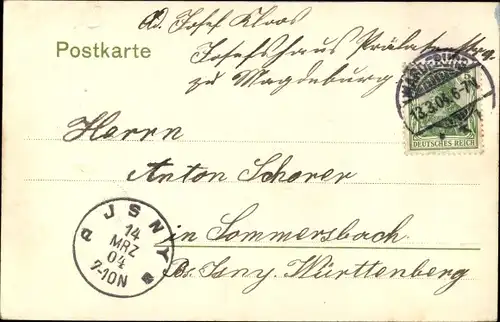 Ad. Josef Kloos
Postkarte
Josefshaus Prälatenstrg.
zu Magdeburg
MAGDEBURG
13.3.04.6-7N.
DEUTSCHES REICH
Herrn
Anton Schorer
JSNY
14
MRZ
04
7-10N
in Sommersbach
Bz. Isny. Württenberg